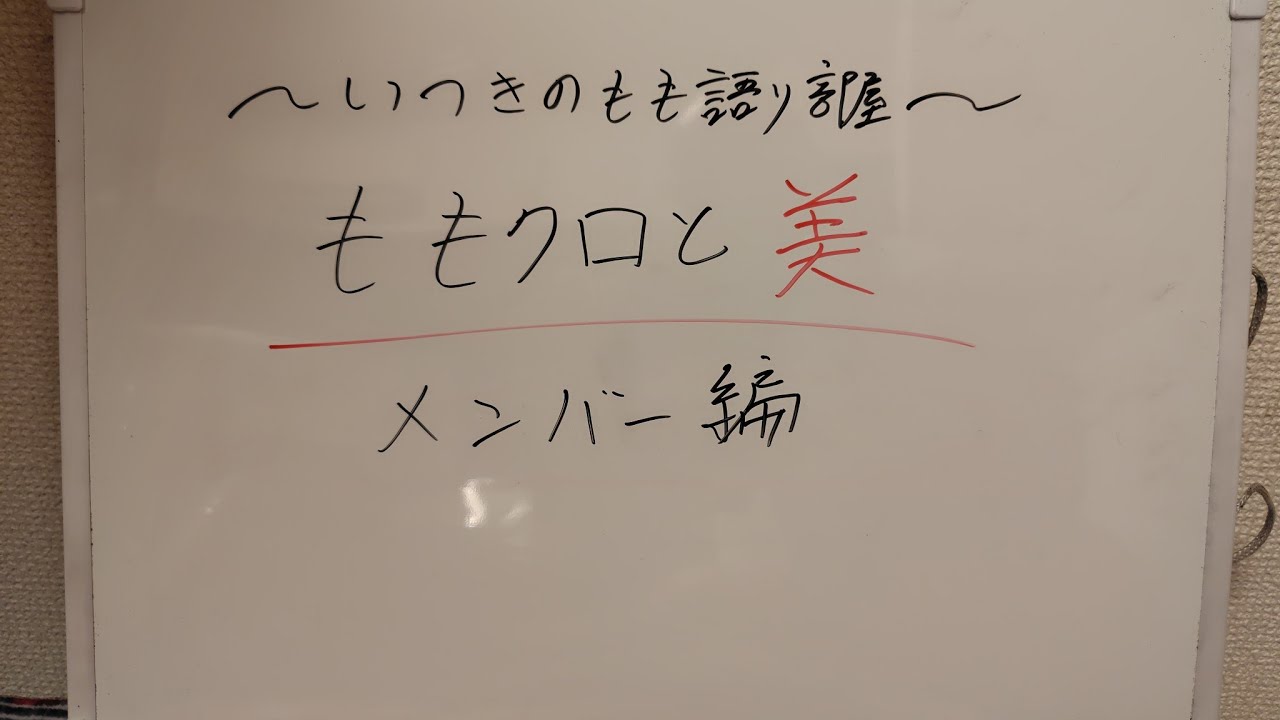 ～いつきのもも語り部屋～
ももクロと美
メンバー編